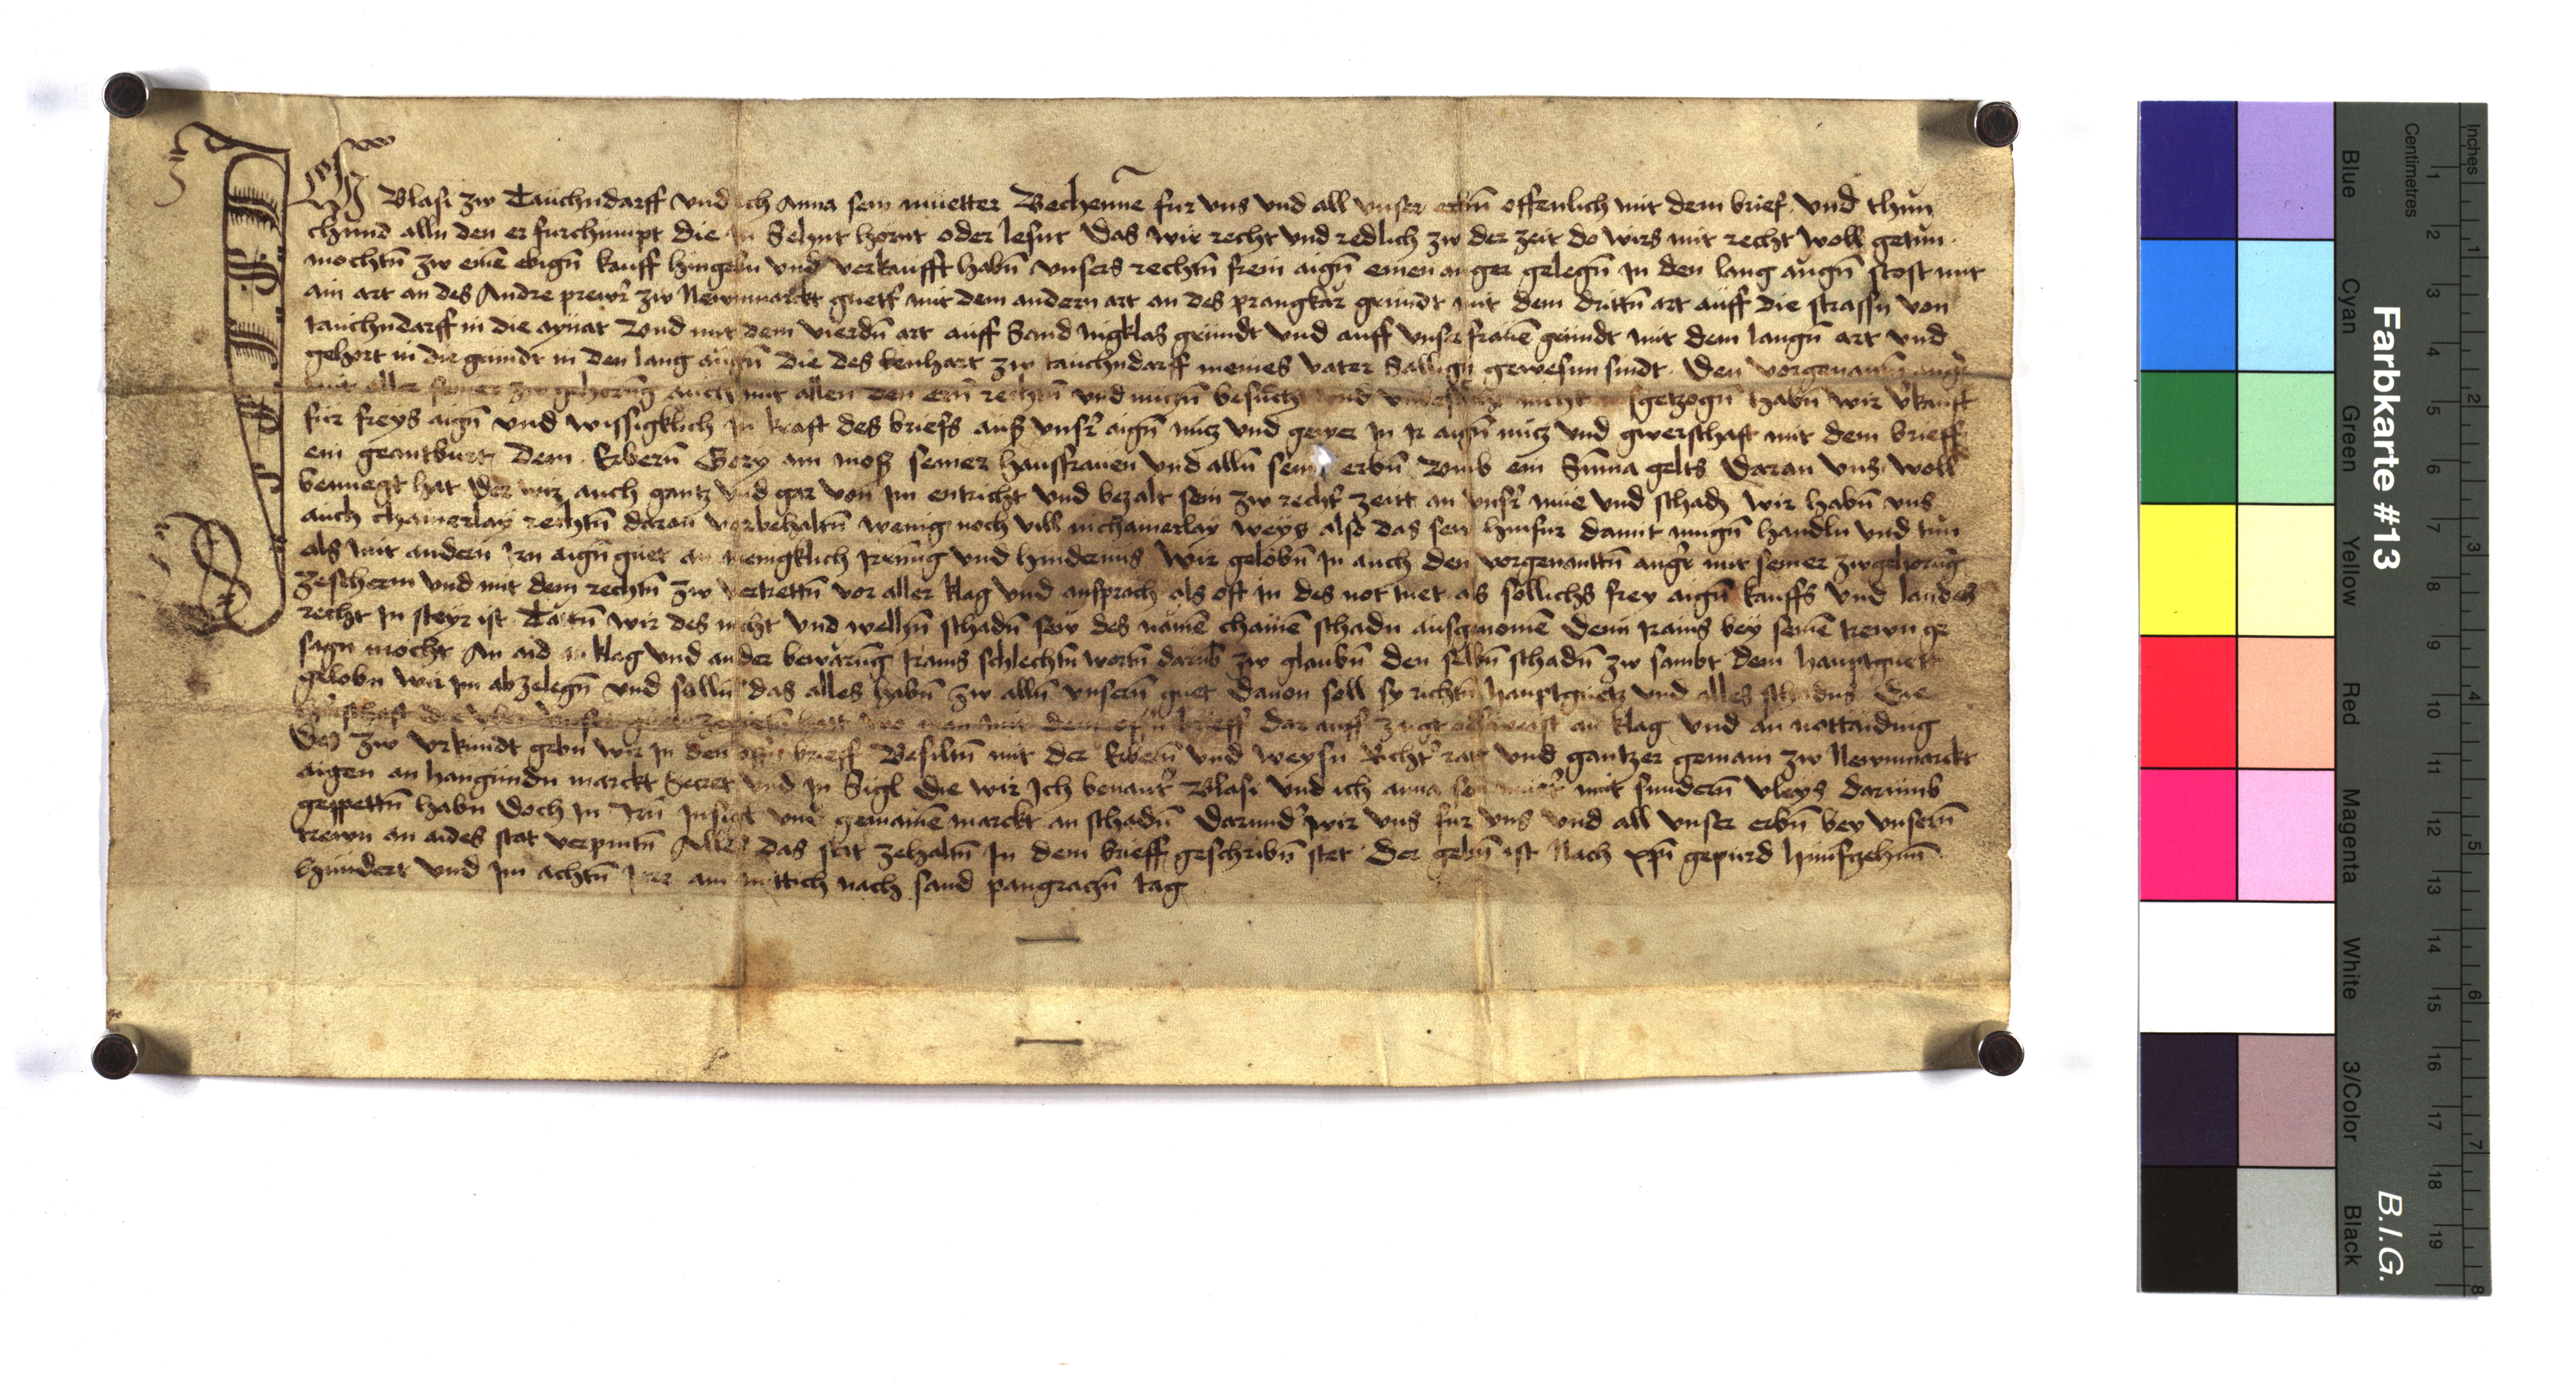 Ich Blasi zw Tauchndarff vnd ich Anna sein mueter Bechenne fur vns vnd all vnser erbn offenlich mit dem brief vnd thun
chund alln den er furchumpt die in Sehnt hornt oder lesnt Das wir recht vnd redlich zw der zeit do wirs mit recht woll getun
mochtn zw eine ebign kauff hingebn vnd verkaufft habn vnsers rechtn frein aign einen anger gelegn In den lang augn stost mit
ain art an des Andre prewr zw Newnmarckt guett mit dem andern art an des prangkar grundt mit dem drittn art auff die strassn von
tauchndarff in die aynat Vnd mit dem vierdn art auff Sand nigklas grundt vnd auff vnser fraue grundt mit dem langn art vnd
gehort in die grundt in den lang augn die des lenhart zw tauchndarff meines vater Sallign gewesnn sindt Den vorgenantn angr
mit aller seiner zw gehorung auch mit allen den ern rechtn vnd nutzn besucht vnd vnbesucht nicht ausgetzogn habn wir vkauft
fur freys aign vnd wissigklich in kraft des briefs auß vnsr aign nutz vnd gewer in ir aign nutz vnd gwerschaft mit dem brieff
ein geantburt Dem Erbern Gory am moß seiner hausfrauen vnd alln sein erbn Vmb ein Suma gelts Daran vns woll
benuegt hat Der wir auch gantz vnd gar von im entricht vnd bezalt sein zw rechtr zeitt an vnsr mue vnd schadn wir habn vns
auch chainerlay rechtn daran vorbehaltn wenig noch vill in chainerlay weys also das sew hinfur damit mugn handln vnd tun
als mit andern irn aign guet an menigklich irrung vnd hindernus Wir gelobn in auch den vorgenanttn angr mit seiner zwgehorung
zescherm vnd mit dem rechtn zw vertrettn vor aller klag vnd ansprach als oft in des not tuet als sollichs frey aign kauffs vnd landes
recht In steyr ist Tattn wir des nicht vnd welhn schadn sew des name chaine schadn ausgenome Denn irains bey seine trewn ge
sagn mocht An aid an klag vnd ander bewarung irains schlechtn wortn darub zw glaubn den selbn schadn zw sambt dem hauptguett
gelobn wir im abzelegn vnd sulln das alles habn zw alln vnsern guet dauon soll sy richtn hauptguetz vnd alles schadns Die
dar auff zaigt an klag vnd an nottaiding
Des zw vrkundt gebn wir in den offn brieff Besiltn mit der Erbern vnd weysn Richtr rat vnd gantzer gemain zw Newnmarckt
aigen an hangundn marckt Secret vnd In Sigl Die wir Ich benantr Blasi vnd ich anna sein muetr mit sundern vleys darumb
gepettn habn Doch In Irn Insigl vnd gemaine marckt an schadn Darundr wir vns fur vns vnd all vnser erbn bey vnsern
trewn an aides stat verpintn Alles das stat zehaltn In dem brieff geschribn stet Der gebn ist Nach xpi gepurd funfzehnn
hundert vnd Im achtn Jar am mittich nach sand pangraczn tag
Farbkarte #13
B.I.G.
Blue
Cyan
Green
Yellow
Red
Magenta
White
3/Color
Black
Centimetres
Inches
1 2 3 4 5 6 7 8 9 10 11 12 13 14 15 16 17 18 19
1 2 3 4 5 6 7 8